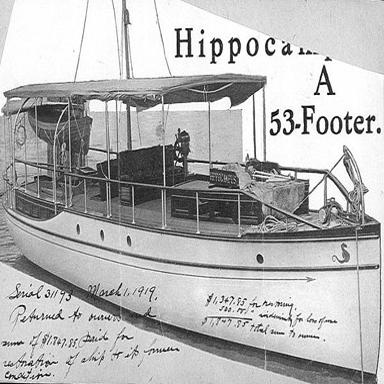 Hippocamp
A
53-Footer.
HIPPOCAMPUS
Serial 31193 March 1, 1919.
Returned to owners and
sum of $1,847.85 paid for
restoration of ship to its former
condition.
$1,347.85 for restoring
500.00 indemnity for loss of use
$1,847.85 total sum to owner.